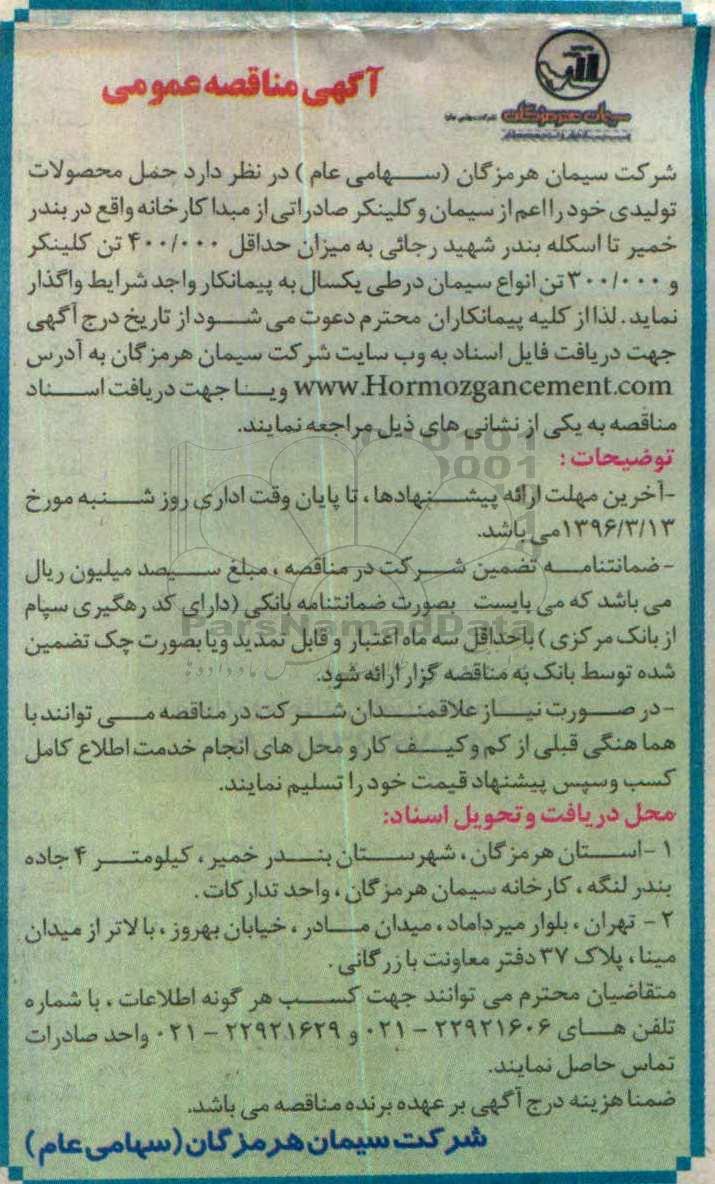 سیمان هرمزگان
آگهی مناقصه عمومی
شرکت سیمان هرمزگان (سهامی عام) در نظر دارد حمل محصولات
تولیدی خود را اعم از سیمان و کلینکر صادراتی از مبدا کارخانه واقع در بندر
خمیر تا اسکله بندر شهید رجائی به میزان حداقل ۴۰۰/۰۰۰ تن کلینکر
و ۳۰۰/۰۰۰ تن انواع سیمان در طی یکسال به پیمانکار واجد شرایط واگذار
نماید. لذا از کلیه پیمانکاران محترم دعوت می شود از تاریخ درج آگهی
جهت دریافت فایل اسناد به وب سایت شرکت سیمان هرمزگان به آدرس
www.Hormozgancement.com ویا جهت دریافت اسناد
مناقصه به یکی از نشانی های ذیل مراجعه نمایند.
توضیحات :
-آخرین مهلت ارائه پیشنهادها ، تا پایان وقت اداری روز شنبه مورخ
۱۳۹۶/۳/۱۳ می باشد.
- ضمانتنامه تضمین شرکت در مناقصه ، مبلغ سیصد میلیون ریال
می باشد که می بایست بصورت ضمانتنامه بانکی (دارای کد رهگیری سپام
از بانک مرکزی) باحداقل سه ماه اعتبار و قابل تمدید ویا بصورت چک تضمین
شده توسط بانک به مناقصه گزار ارائه شود.
-در صورت نیاز علاقمندان شرکت در مناقصه می توانند با
هماهنگی قبلی از کم و کیف کار و محل های انجام خدمت اطلاع کامل
کسب و سپس پیشنهاد قیمت خود را تسلیم نمایند.
محل دریافت و تحویل اسناد:
۱ -استان هرمزگان ، شهرستان بندر خمیر ، کیلومتر ۴ جاده
بندر لنگه ، کارخانه سیمان هرمزگان ، واحد تدارکات .
۲ - تهران ، بلوار میرداماد ، میدان مادر ، خیابان بهروز ، بالاتر از میدان
مینا ، پلاک ۳۷ دفتر معاونت بازرگانی .
متقاضیان محترم می توانند جهت کسب هر گونه اطلاعات ، با شماره
تلفن های ۲۲۹۲۱۶۰۶ - ۰۲۱ و ۲۲۹۲۱۶۲۹ - ۰۲۱ واحد صادرات
تماس حاصل نمایند.
ضمنا هزینه درج آگهی بر عهده برنده مناقصه می باشد.
شرکت سیمان هرمزگان (سهامی عام)
ParsNamadData